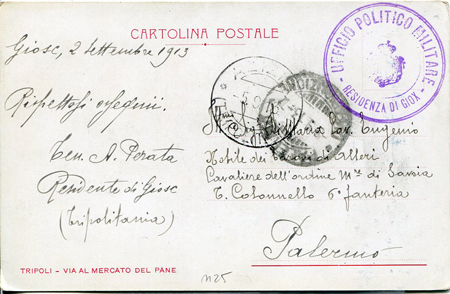 CARTOLINA POSTALE
Giosc, 2 Settembre 1913
Rispettosi ossequii.
Ten. A. Perata
Residente di Giosc
(Tripolitania)
UFFICIO POLITICO MILITARE
- RESIDENZA DI GIOX -
Maria Cav. Eugenio
Nobile dei Baroni di Alleri
Cavaliere dell'ordine M.no di Savoia
T. Colonnello 6° fanteria
Palermo
TRIPOLI - VIA AL MERCATO DEL PANE
n25